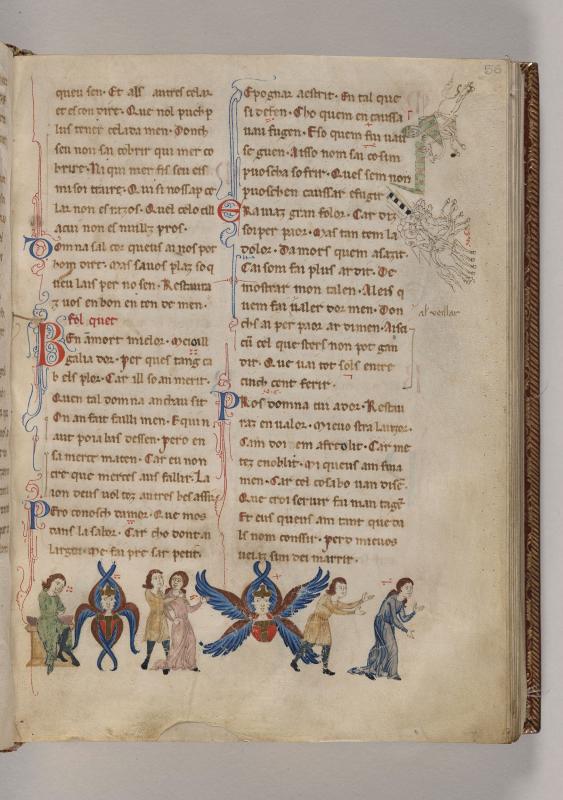 56
queu sen. Et als autres celar
et escondire. Que nol puesc p
lus tener celada men. Donch
seu non sai cobrir qui mer co
brire. Ni qui mer fis seu eis
mi soi traire. Qui si nossap ce
lar non es razos. Quel celo cill
acui non es nuillz pros.
Domna sal cor queus ai nos por
hom dire. Mas sauos plaz so q
neu lais per no sen. Restaura
z uos en bon en ten de men.
fol quet
Ben an mort mielor. Me ioill
galia dor. Per ques tang ca
b els plor. Car ill so an merir.
Quen tal domna anchau sit
On an fait failli men. Equin
aut poia bas dessen. Pero en
sa merce maten. Car eu non
cre que merces aus faillir. La
ion deus uol toz autres bes assir
Pero conosch damor. Que mos
dans la sabor. Car cho dont ai
largor. Me fai pre sar petit.
Epognar aestrit. En tal que
si defen. Cho quem en caussa
uau fugen. Eso quem fui uau
se guen. Aisso nom sai cosim
puoscha so frir. Ques sem non
puoschen caussar efugir
Era iaz gran folor. Car diz
soi per paor. Mas tan tem la
dolor. Damors quem asazit.
Cai som fai plus ardit. De
mostrar mon talen. Aleis q
uem fai ualer dor men. Don
chs ai per paor ar di men. Aisa
cũ cel que stors non pot gan
dir. Que uai tot sols entre
cinch cent ferir.
al veillar
Pros domna cui ador. Restau
raz en ualor. Mi euostra lauzor.
Cam dor em afreolit. Car me
tez enoblit. Mi queus am fina
men. Car cel cosabo uan disẽ.
Que croi seruir fai man tagẽ
Et eus queus am tant que da
ls nom conssir. Perd mieuos
ueiaz sim dei marrir.